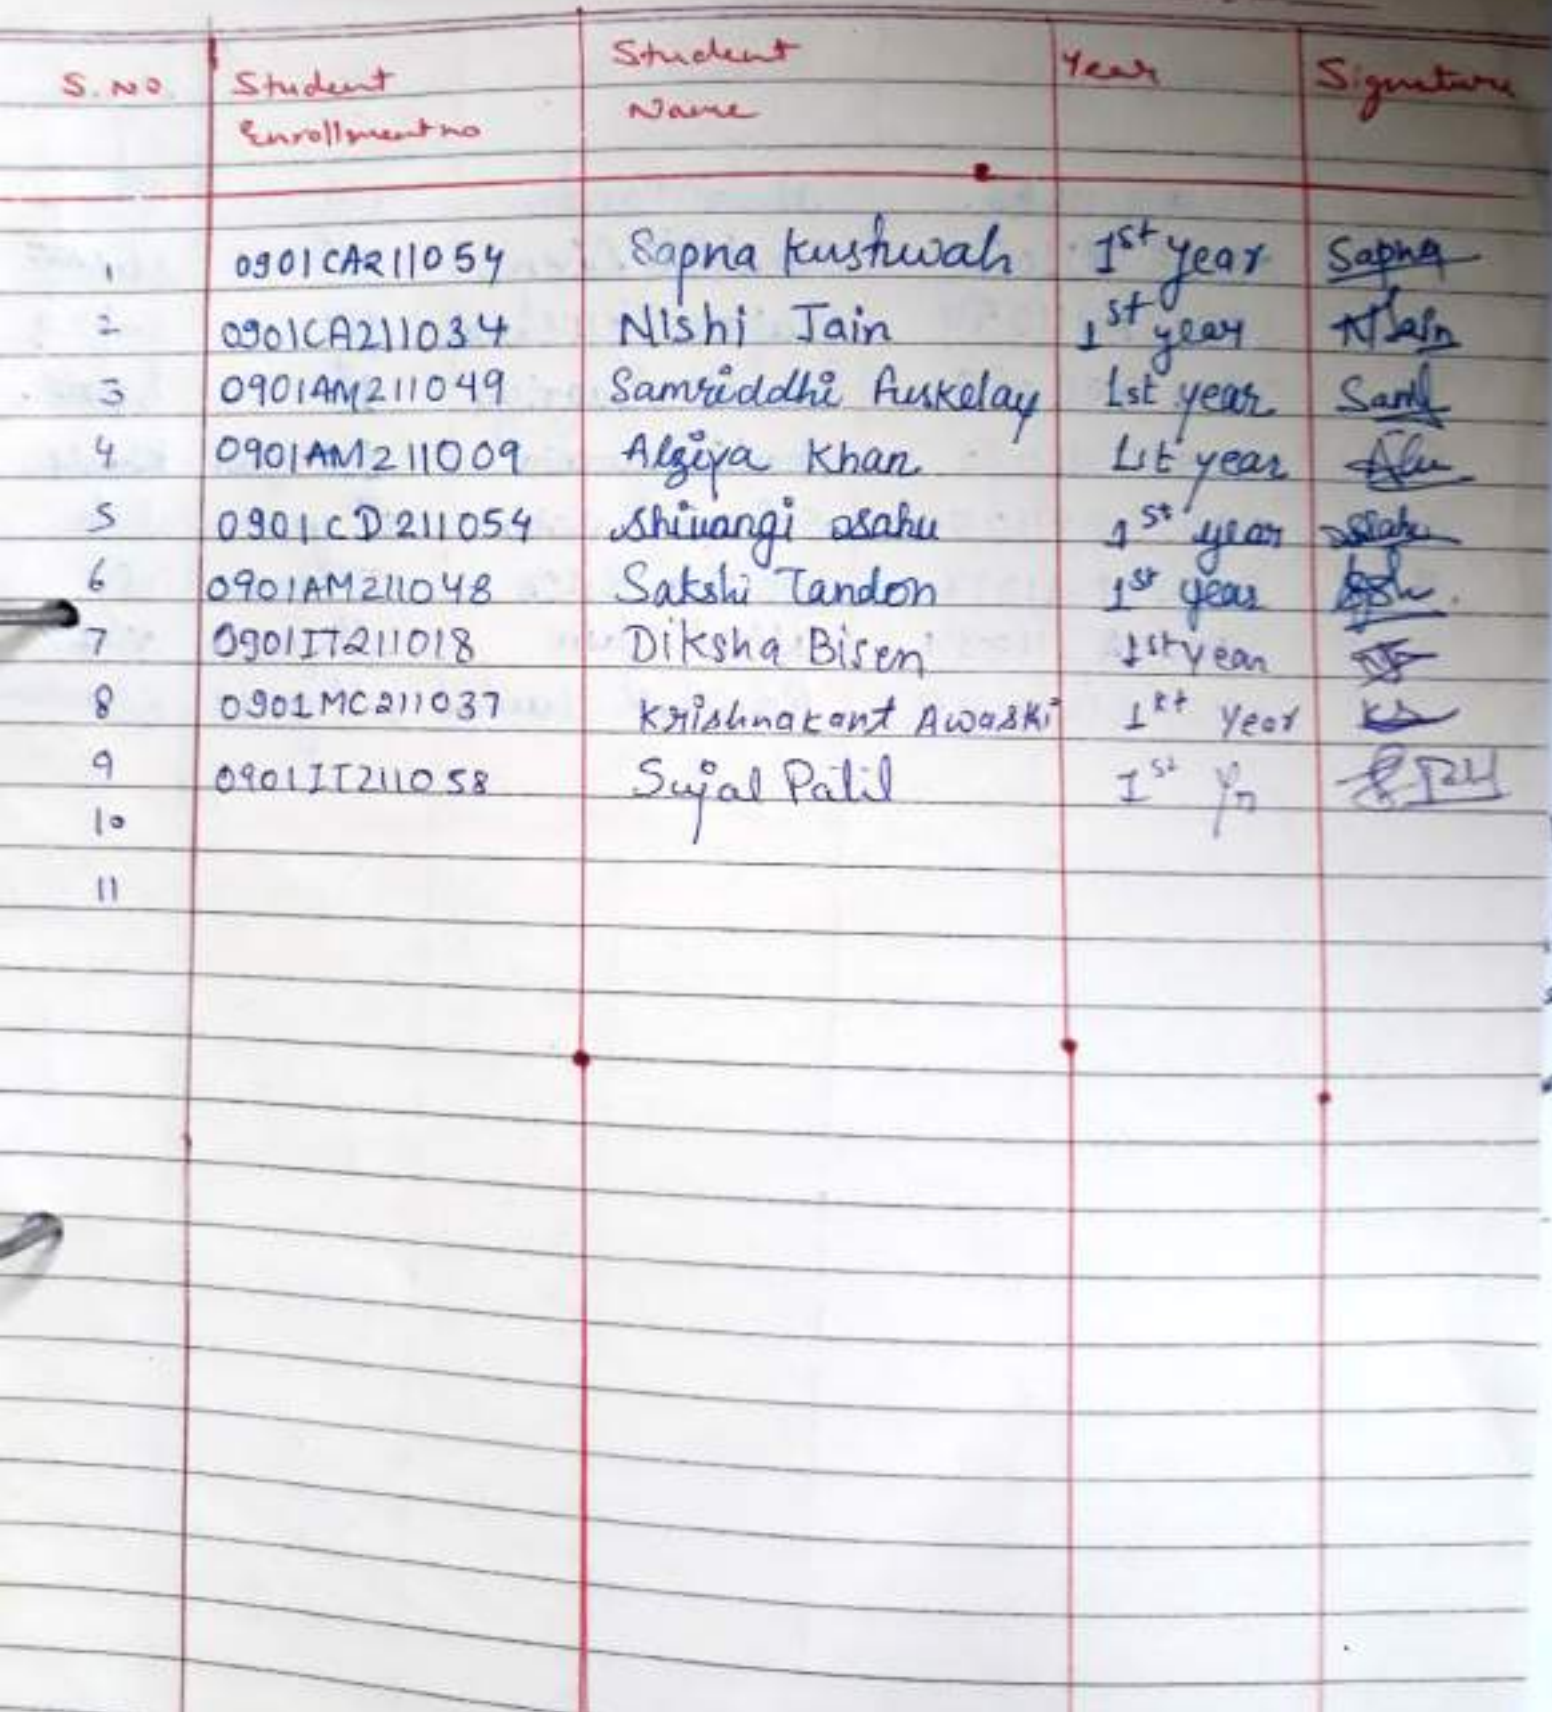 S.NO. Student Enrollment no Student Name Year Signature
1 0901CA211054 Sapna Kushwah 1st year Sapna
2 0901CA211034 Nishi Jain 1st year NJain
3 0901AM211049 Samriddhi 1st year
4 0901AM211009 Algiya Khan 1st year
5 0901CD211054 Shivangi Sahu 1st year SSahu
6 0901AM211048 Sakshi Tandon 1st year
7 0901IT211018 Diksha Bisen 1st year
8 0901MC211037 Krishnakant Awasthi 1st Year
9 0901IT211058 Sujal Patil 1st Yr
10
11